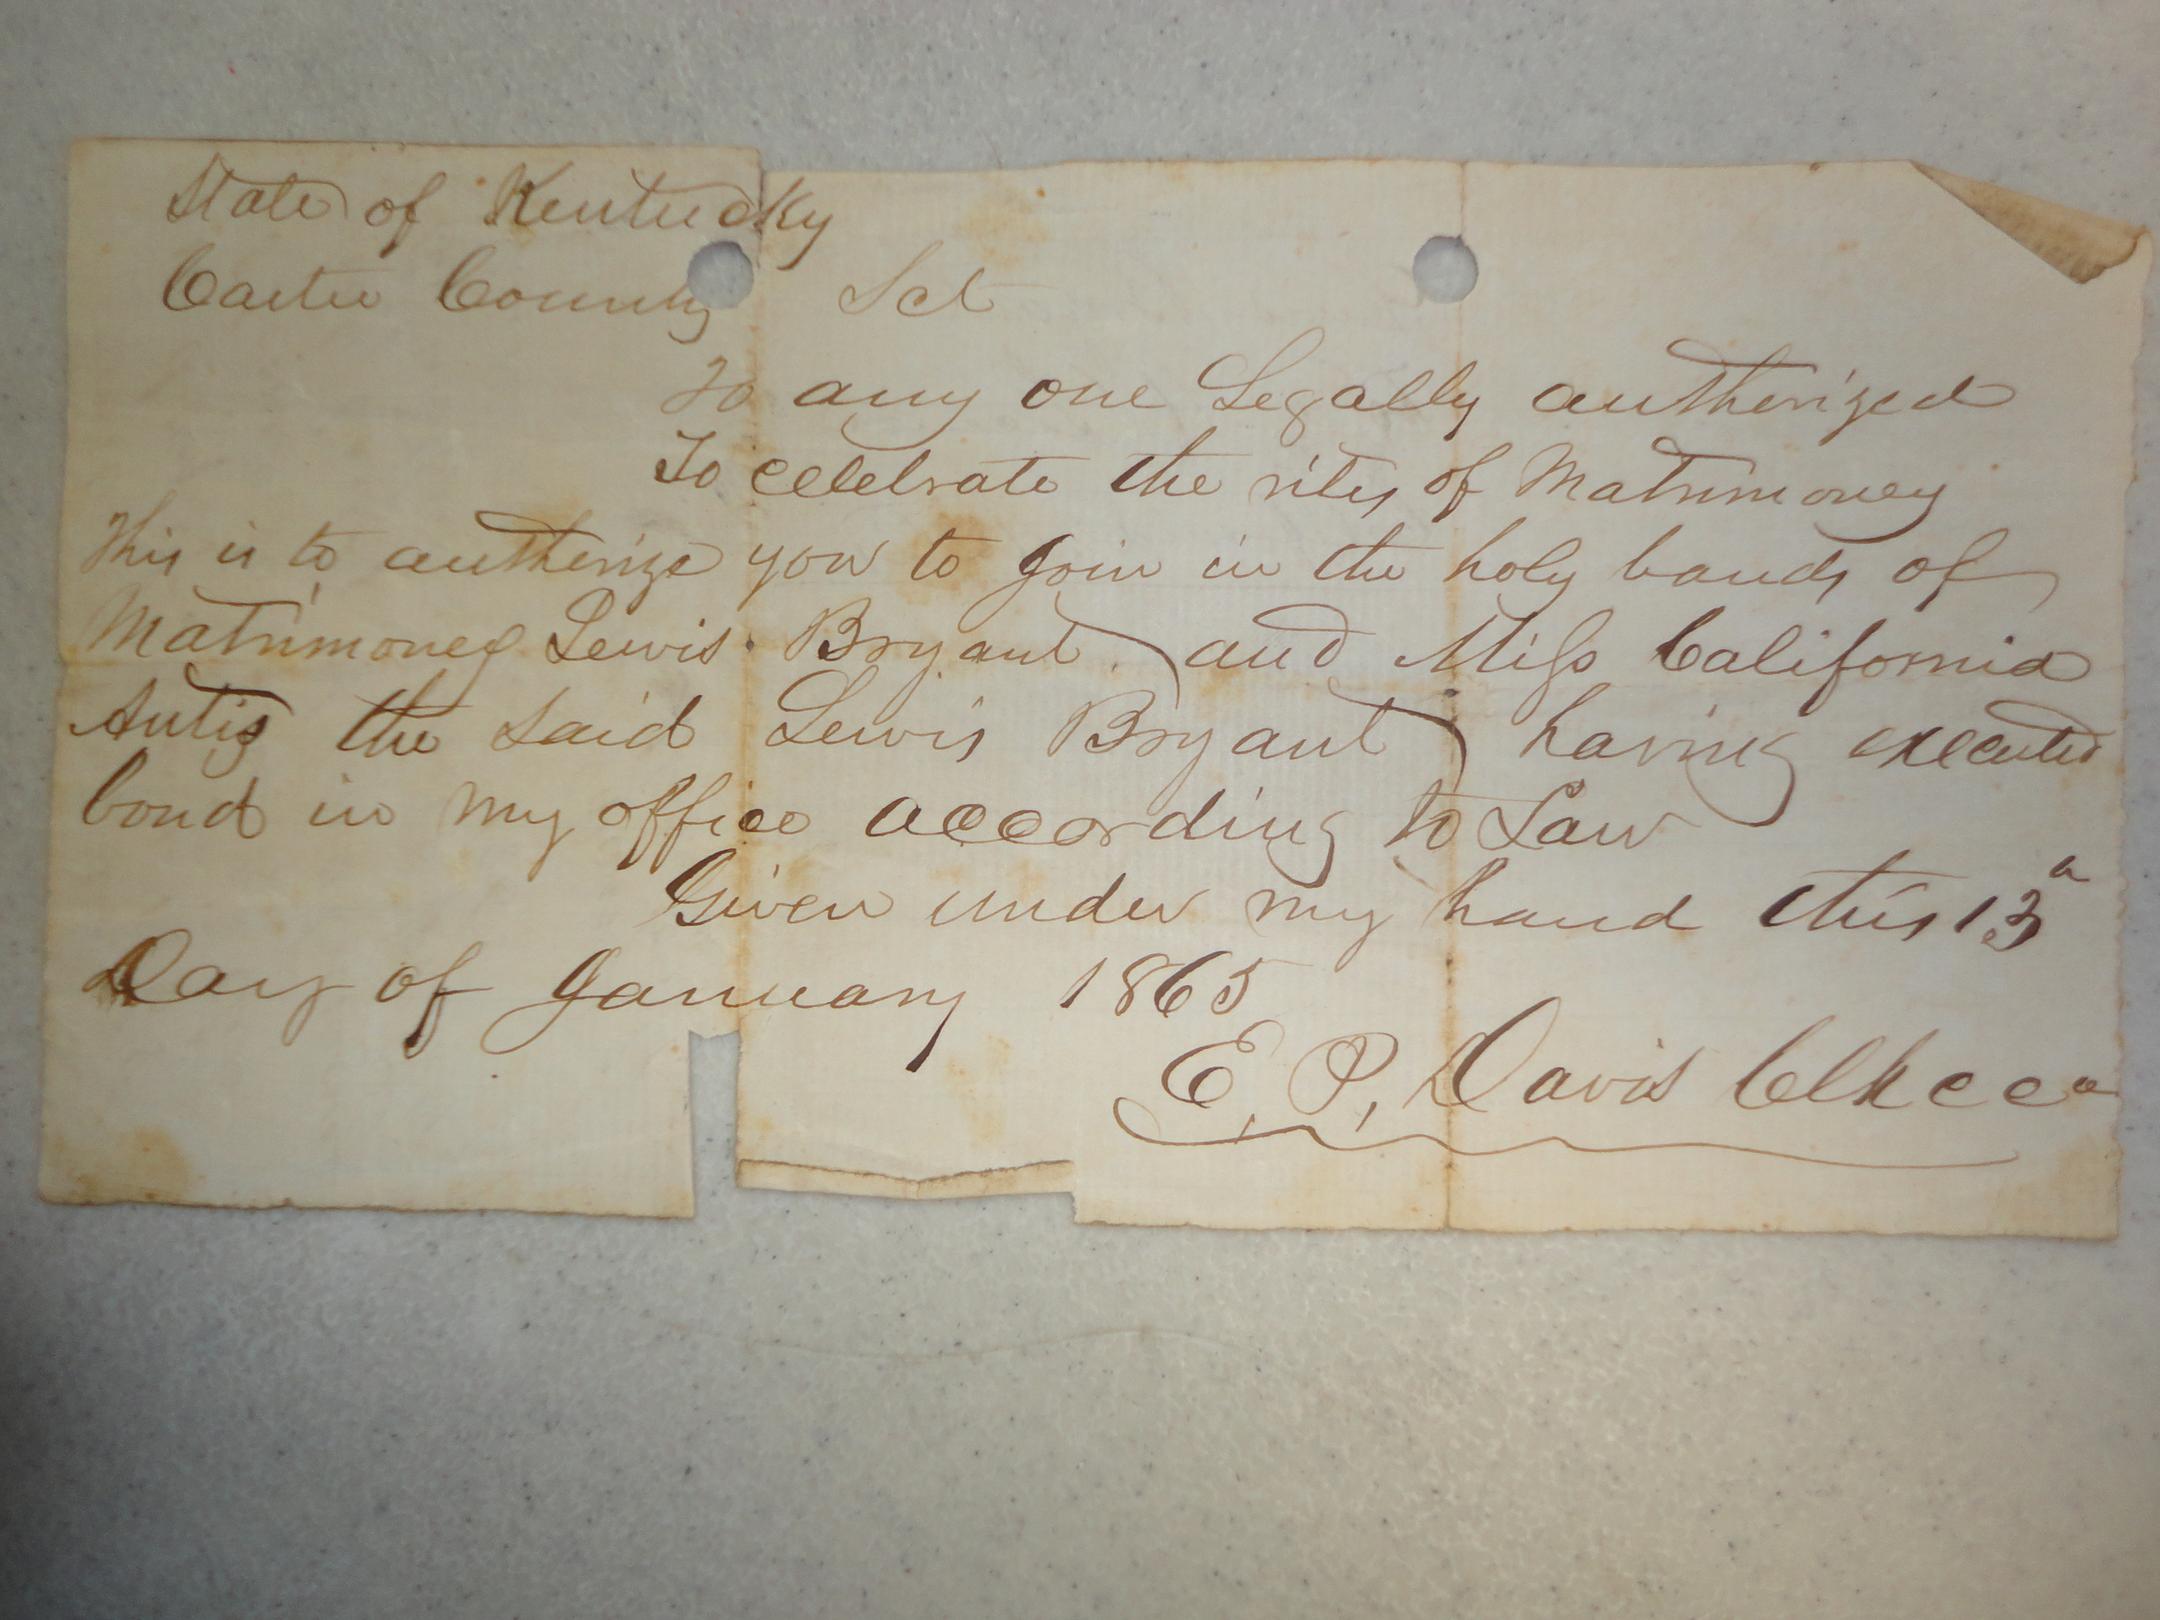 State of Kentucky
Carter County Sct
To any one Legally authorized
To celebrate the rites of Matrimoney
This is to authorize you to Join in the holy bands of
Matrimoney Lewis Bryant and Miss California
the said Lewis Bryant having executed
bond in my office according to Law
Given under my hand this 13
Day of January 1865
E. P. Davis Clk c c